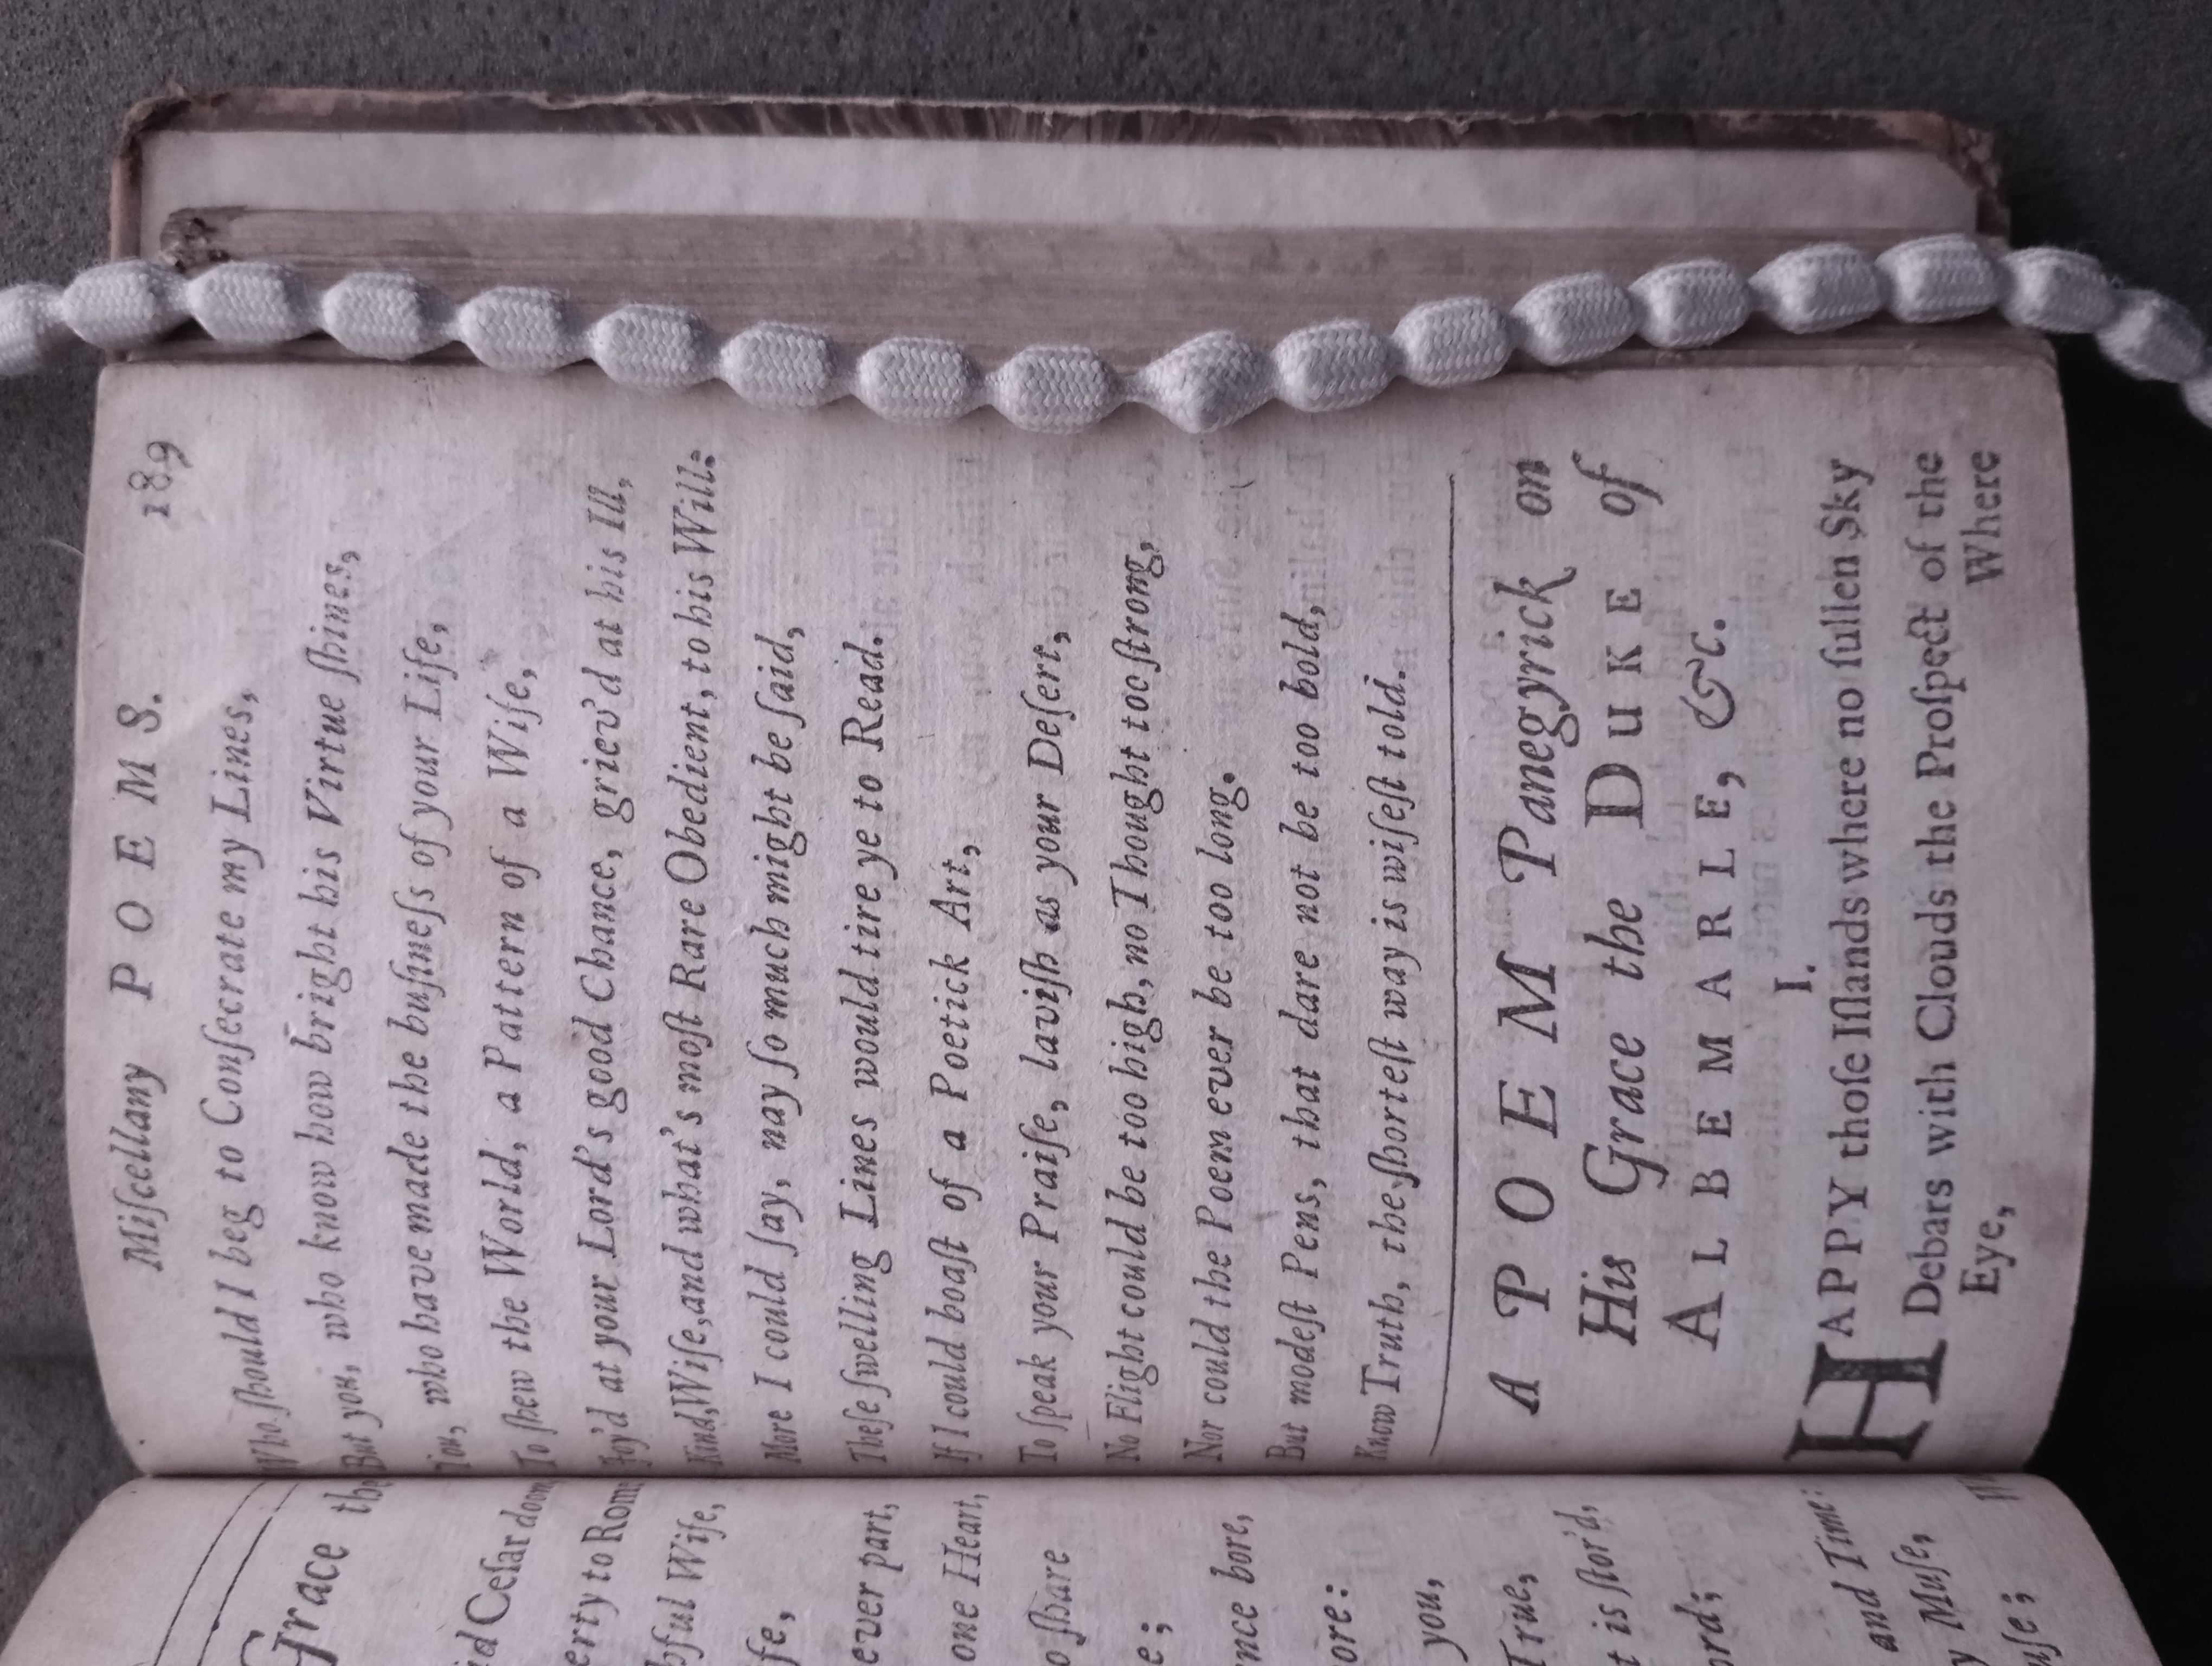 Miſcellany POEMS. 189
Who ſhould I beg to Conſecrate my Lines,
But you, who know how bright his Virtue ſhines,
You, who have made the buſineſs of your Life,
To ſhew the World, a Pattern of a Wife,
Joy'd at your Lord's good Chance, griev'd at his Ill,
Kind, Wife, and what's moſt Rare Obedient, to his Will:
More I could ſay, nay ſo much might be ſaid,
Theſe ſwelling Lines would tire ye to Read.
If I could boaſt of a Poetick Art,
To ſpeak your Praiſe, laviſh as your Deſert,
No Flight could be too high, no Thought too ſtrong,
Nor could the Poem ever be too long.
But modeſt Pens, that dare not be too bold,
Know Truth, the ſhorteſt way is wiſeſt told.
A POEM Panegyrick on
His Grace the DUKE of
ALBEMARLE, &c.
I.
HAPPY thoſe Iſlands where no ſullen Sky
Debars with Clouds the Proſpect of the
Eye,
Where
Grace the
Ceſar doom
to Rom
Wife,
ever part,
one Heart,
ſhare
bore,
you,
True,
is ſtor'd,
and Time:
Muſe,